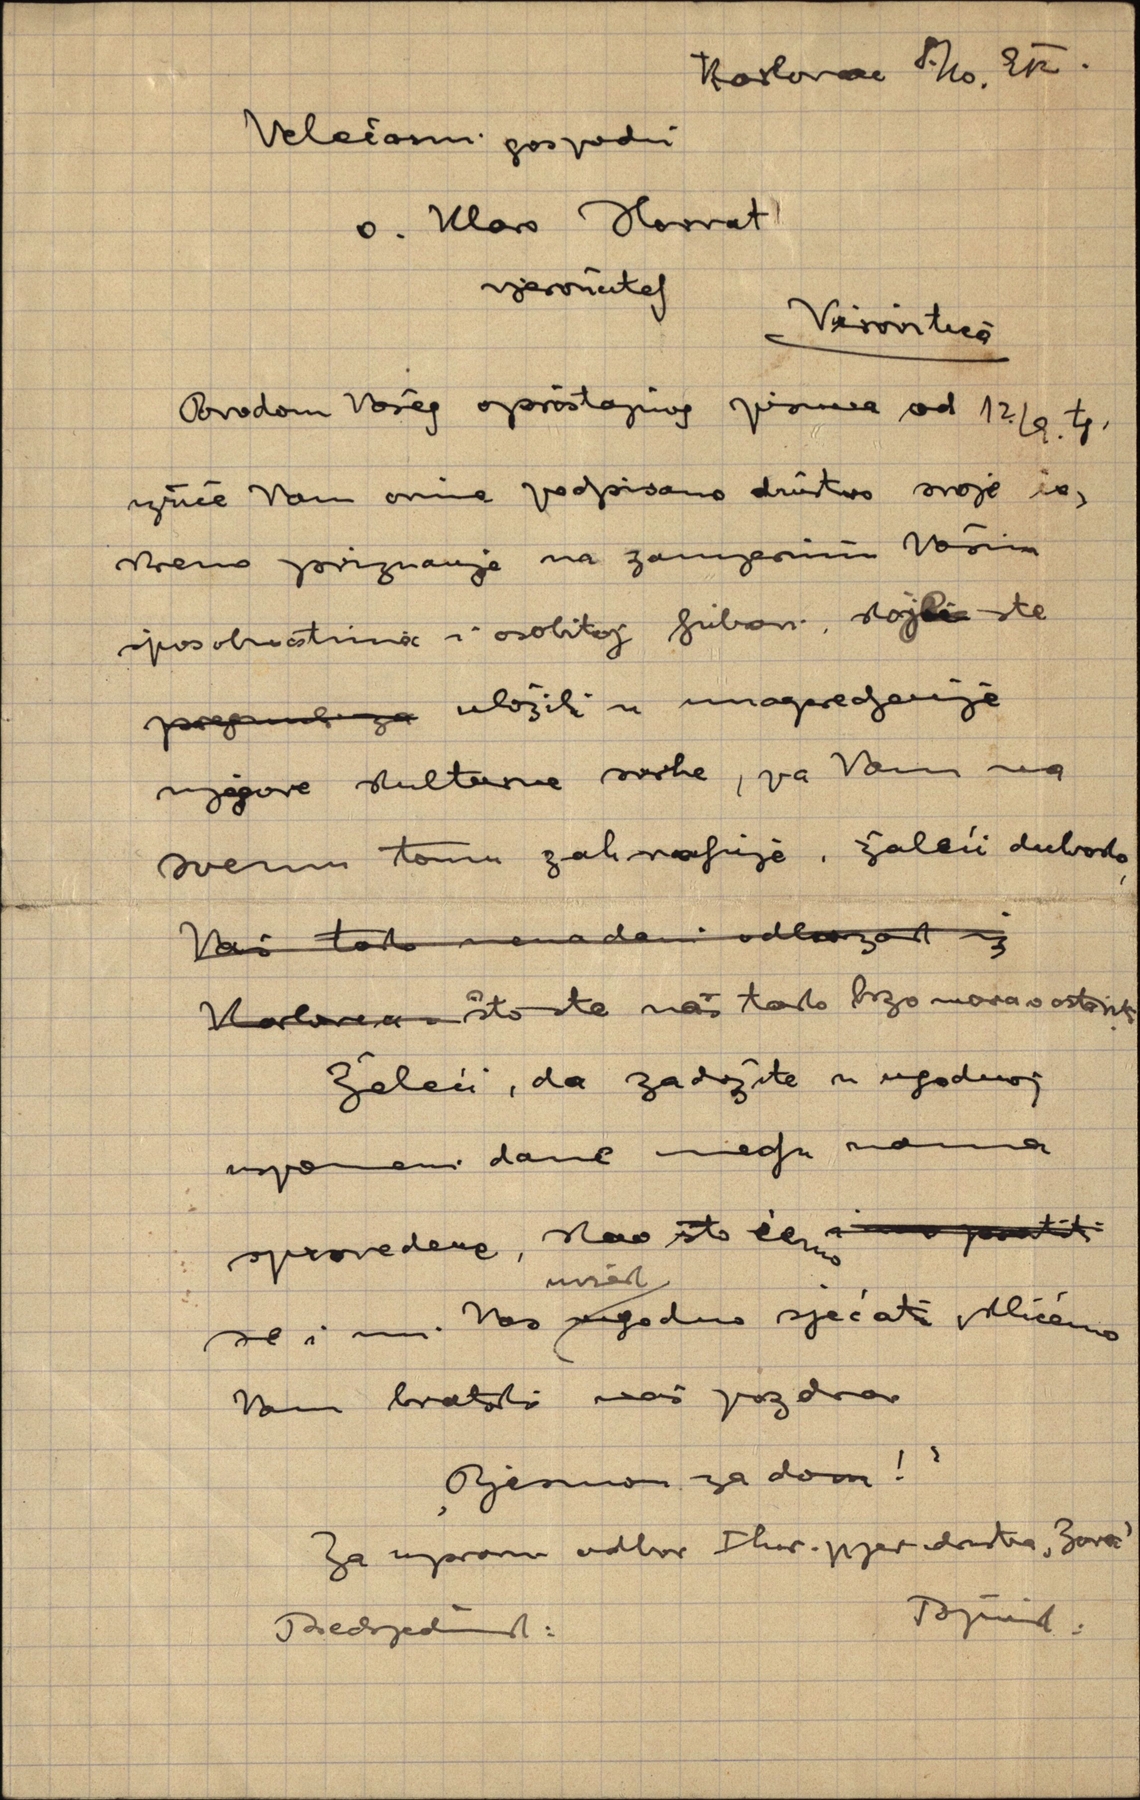 Karlovac 8./10.
Velečasni gospodin
o. Klaro Horvat
vjeroučitelj
Virovitica
Povodom Vašeg oproštajnog pisma od 12./9. tg.
izriče Vam ovime podpisano društvo svoje is,
kreno priznanje na zamjernim Vašim
sposobnostima i osobitoj ljubavi, koju ste
uložili u unapredjenje
njegove kulturne svrhe, pa Vam na
svemu tomu zahvaljuje, žaleći duboko,
Vaš tako nenadani odlazak iz
Karlovca što ste nas tako brzo morao ostaviti
Želeći, da zadržite u ugodnoj
uspomeni dane medju nama
sprovedene, kao što ćemo
uvijek
se i mi Vas ugodno sjećati kličemo
Vam bratski naš pozdrav
„Pjesmom za dom!"
Za upravni odbor I hrv. pjev. društva „Zora"
Predsjednik: Tajnik: